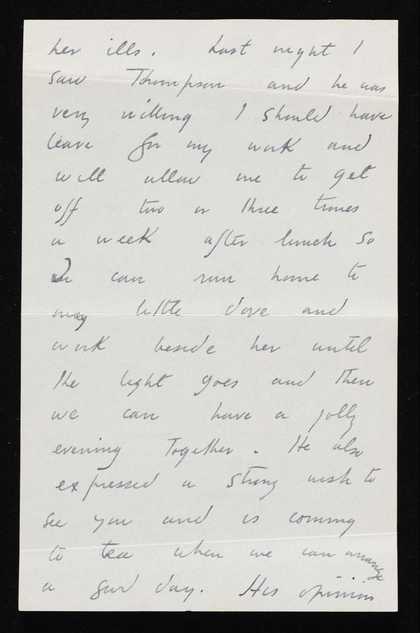 her ills. Last night I
saw Thompson and he was
very willing I should have
leave for my work and
will allow me to get
off two or three times
a week after lunch so
I can run home to
my little dove and
work beside her until
the light goes and then
we can have a jolly
evening together. He also
expressed a strong wish to
see you and is coming
to tea when we can arrange
a good day. His opinion